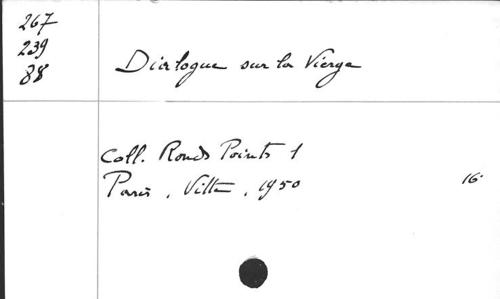 267
239
88
Dialogue sur la Vierge
Coll. Ronds Points 1
Paris, Vitte, 1950
16°